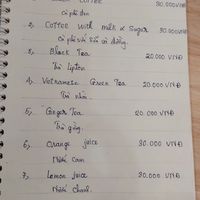 COFFEE 30.000 VNĐ
Cà phê đen
2, COFFEE with milk & Sugar 30.000 VNĐ
Cà phê với sữa và đường.
3, Black Tea 20.000 VNĐ
Trà Lipton
4, Vetnamese Green Tea 20.000 VNĐ
Trà nhài.
5, Ginger Tea 20.000 VNĐ
Trà gừng.
6, Orange juice 30.000 VNĐ
Nước Cam
7, Lemon juice 30.000 VNĐ
Nước Chanh.